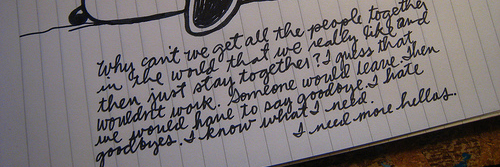 Why can't we get all the people together
in the world that we really like and
then just stay together? I guess that
wouldn't work. Someone would leave. Then
we would have to say goodbye. I hate
goodbyes. I know what I need.
I need more hellos.